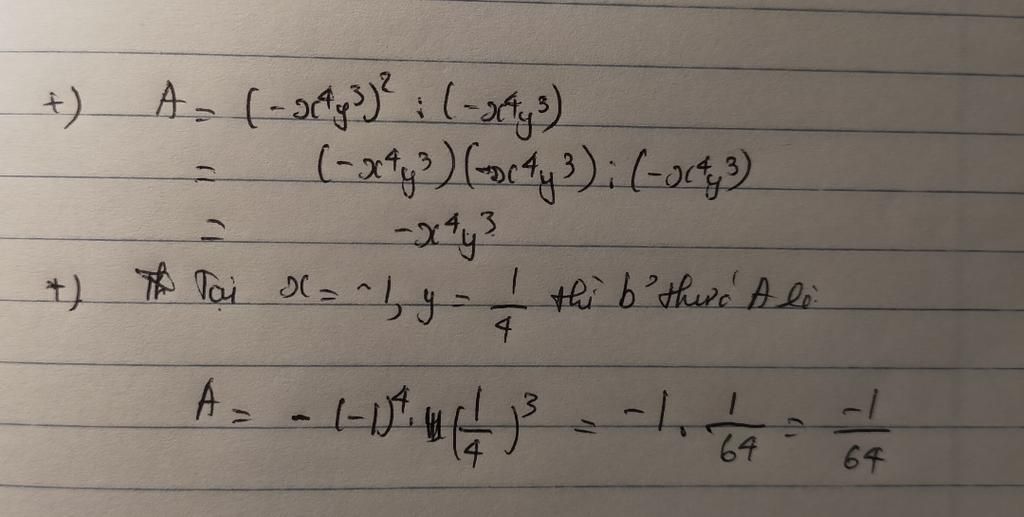 +) A = (-x⁴y³)² : (-x⁴y³)
= (-x⁴y³)(-x⁴y³) : (-x⁴y³)
= -x⁴y³
+) Tại x = -1, y = 1/4 thì b' thức A là:
A = - (-1)⁴. (1/4)³ = -1. 1/64 = -1/64